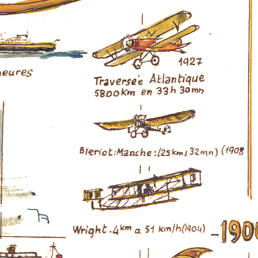 1927
eures
Traversée Atlantique
5800 Km en 33h 30mn
Bleriot: Manche: (25km, 32mn) (1908
Wright. 4km a 51 km/h (1904)
-190